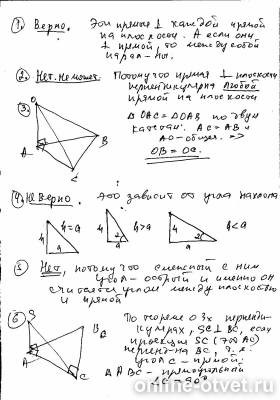 1. Верно. Эти прямые ⊥ каждой прямой
на плоскости. А если они
⊥ прямой, то между собой
парал-ны.
2. Нет. Не может. Потому что прямая ⊥ плоскости
перпендикулярна любой
прямой на плоскости
3.
O
A
B
C
△OAC = △OAB по двум
катетам. AC = AB и
AO - общая. ⇒
OB = OC.
4. Не верно. Это зависит от угла наклона
h h=a
a
h h>a
a
h<a
a
5. Нет, потому что смежный с ним
угол - острый и именно он
считается углом между плоскостью
и прямой.
6.
S
B
A
C
По теореме о 3х перпенди-
кулярах, SC ⊥ BC, если
проекция SC (это AC)
перпен-на BC, т.е.
угол C - прямой.
△ABC - прямоугольный
∠C = 90°
© online-otvet.ru